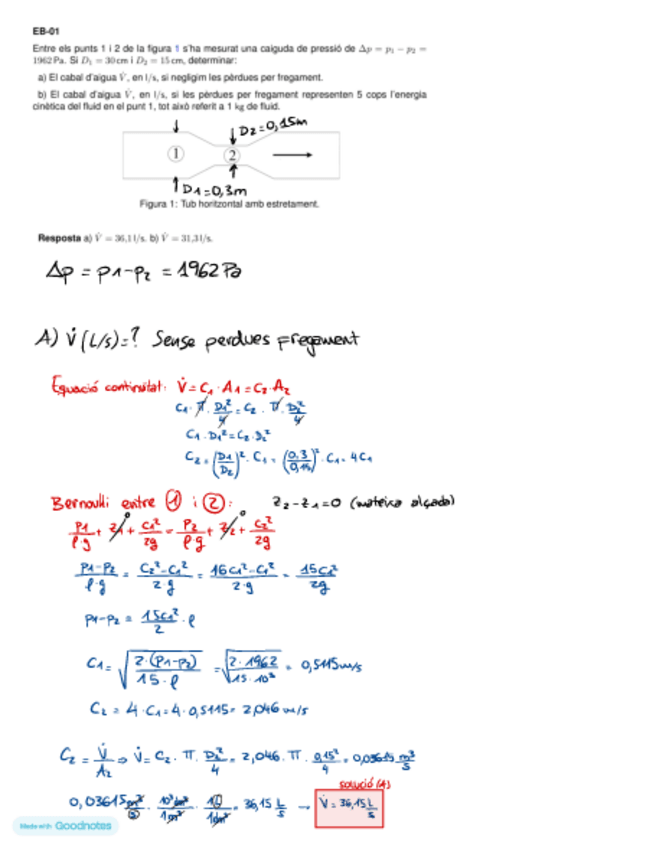 EB-01
Entre els punts 1 i 2 de la figura 1 s'ha mesurat una caiguda de pressió de Δp = p₁ − p₂ =
1962 Pa. Si D₁ = 30 cm i D₂ = 15 cm, determinar:
a) El cabal d'aigua V̇, en l/s, si negligim les pèrdues per fregament.
b) El cabal d'aigua V̇, en l/s, si les pèrdues per fregament representen 5 cops l'energia
cinètica del fluid en el punt 1, tot això referit a 1 kg de fluid.
D2=0,15m
1 2
D1=0,3m
Figura 1: Tub horitzontal amb estretament.
Resposta a) V̇ = 36,1 l/s. b) V̇ = 31,3 l/s.
Δp = p1-p2 = 1962 Pa
A) V̇ (L/s)=? Sense perdues Fregament
Equació continuitat: V̇ = C₁ · A₁ = C₂ · A₂
C₁ · π · D₁²/4 = C₂ · π · D₂²/4
C₁ · D₁² = C₂ · D₂²
C₂ = (D1/D2)² · C₁ = (0,3/0,15)² · C₁ = 4C₁
Bernoulli entre ① i ②: z₂-z₁=0 (mateixa alçada)
P1/ρ·g + z₁ + C₁²/2g = P2/ρ·g + z₂ + C₂²/2g
P1-P2/ρ·g = C₂²-C₁²/2·g = 16C₁²-C₁²/2·g = 15C₁²/2g
p1-p2 = 15C₁²/2 · ρ
C₁ = √(2·(p1-p2)/15·ρ) = √(2·1962/15·10³) = 0,5115 m/s
C₂ = 4·C₁ = 4·0,5115 = 2,046 m/s
C₂ = V̇/A₂ ⇒ V̇ = C₂ · π · D₂²/4 = 2,046 · π · 0,15²/4 = 0,03615 m³/s
solució (A)
0,03615 m³/s · 10³dm³/1m³ · 1l/1dm³ = 36,15 L/s → V̇ = 36,15 L/s
Made with Goodnotes